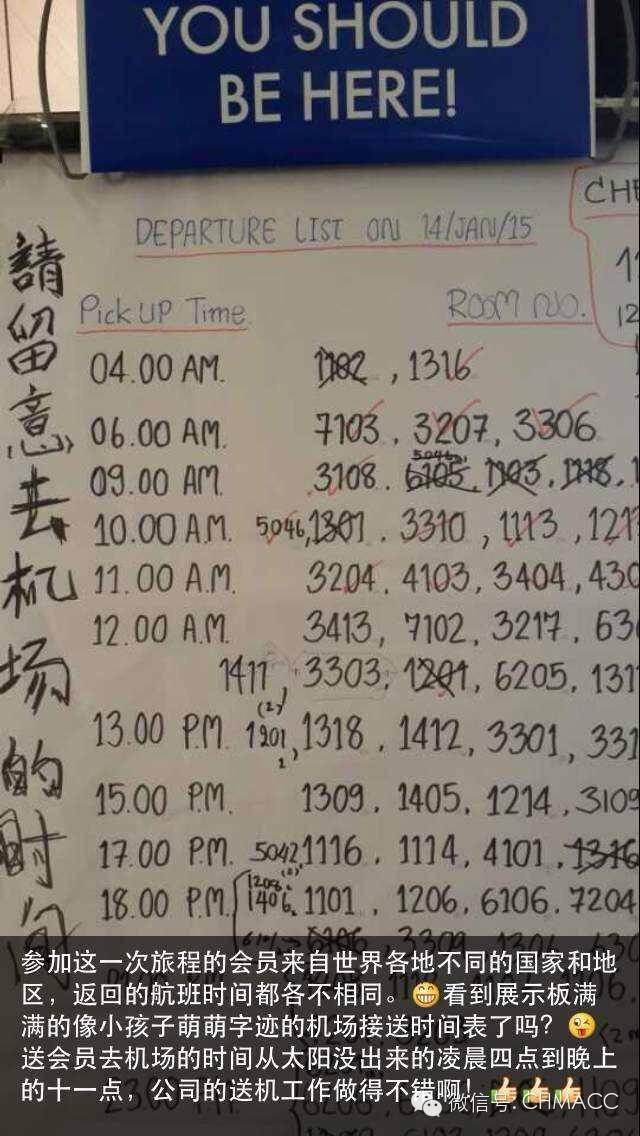 YOU SHOULD
BE HERE!
CHE
DEPARTURE LIST ON 14/JAN/15
請留意去机场的时间
Pick UP Time
ROOM NO.
04.00 AM. 1102, 1316
06.00 AM. 7103, 3207, 3306
5046
09.00 AM. 3108. 6105, 1103. 1118,
10.00 A.M. 5046, 1301. 3310, 1113, 121
11.00 A.M. 3204, 4103, 3404, 430
12.00 A.M. 3413, 7102, 3217, 63
1411, 3303, 1201, 6205, 131
(2)
13.00 P.M. 1201, 1318, 1412, 3301, 331
15.00 P.M. 1309, 1405, 1214, 3109
17.00 P.M. 5042, 1116, 1114, 4101, 1316
1208,
18.00 P.M. 1406, 1101, 1206, 6106, 7204
参加这一次旅程的会员来自世界各地不同的国家和地
区，返回的航班时间都各不相同。😁看到展示板满
满的像小孩子萌萌字迹的机场接送时间表了吗？😜
送会员去机场的时间从太阳没出来的凌晨四点到晚上
的十一点，公司的送机工作做得不错啊！👍👍👍
微信号: CHMACC